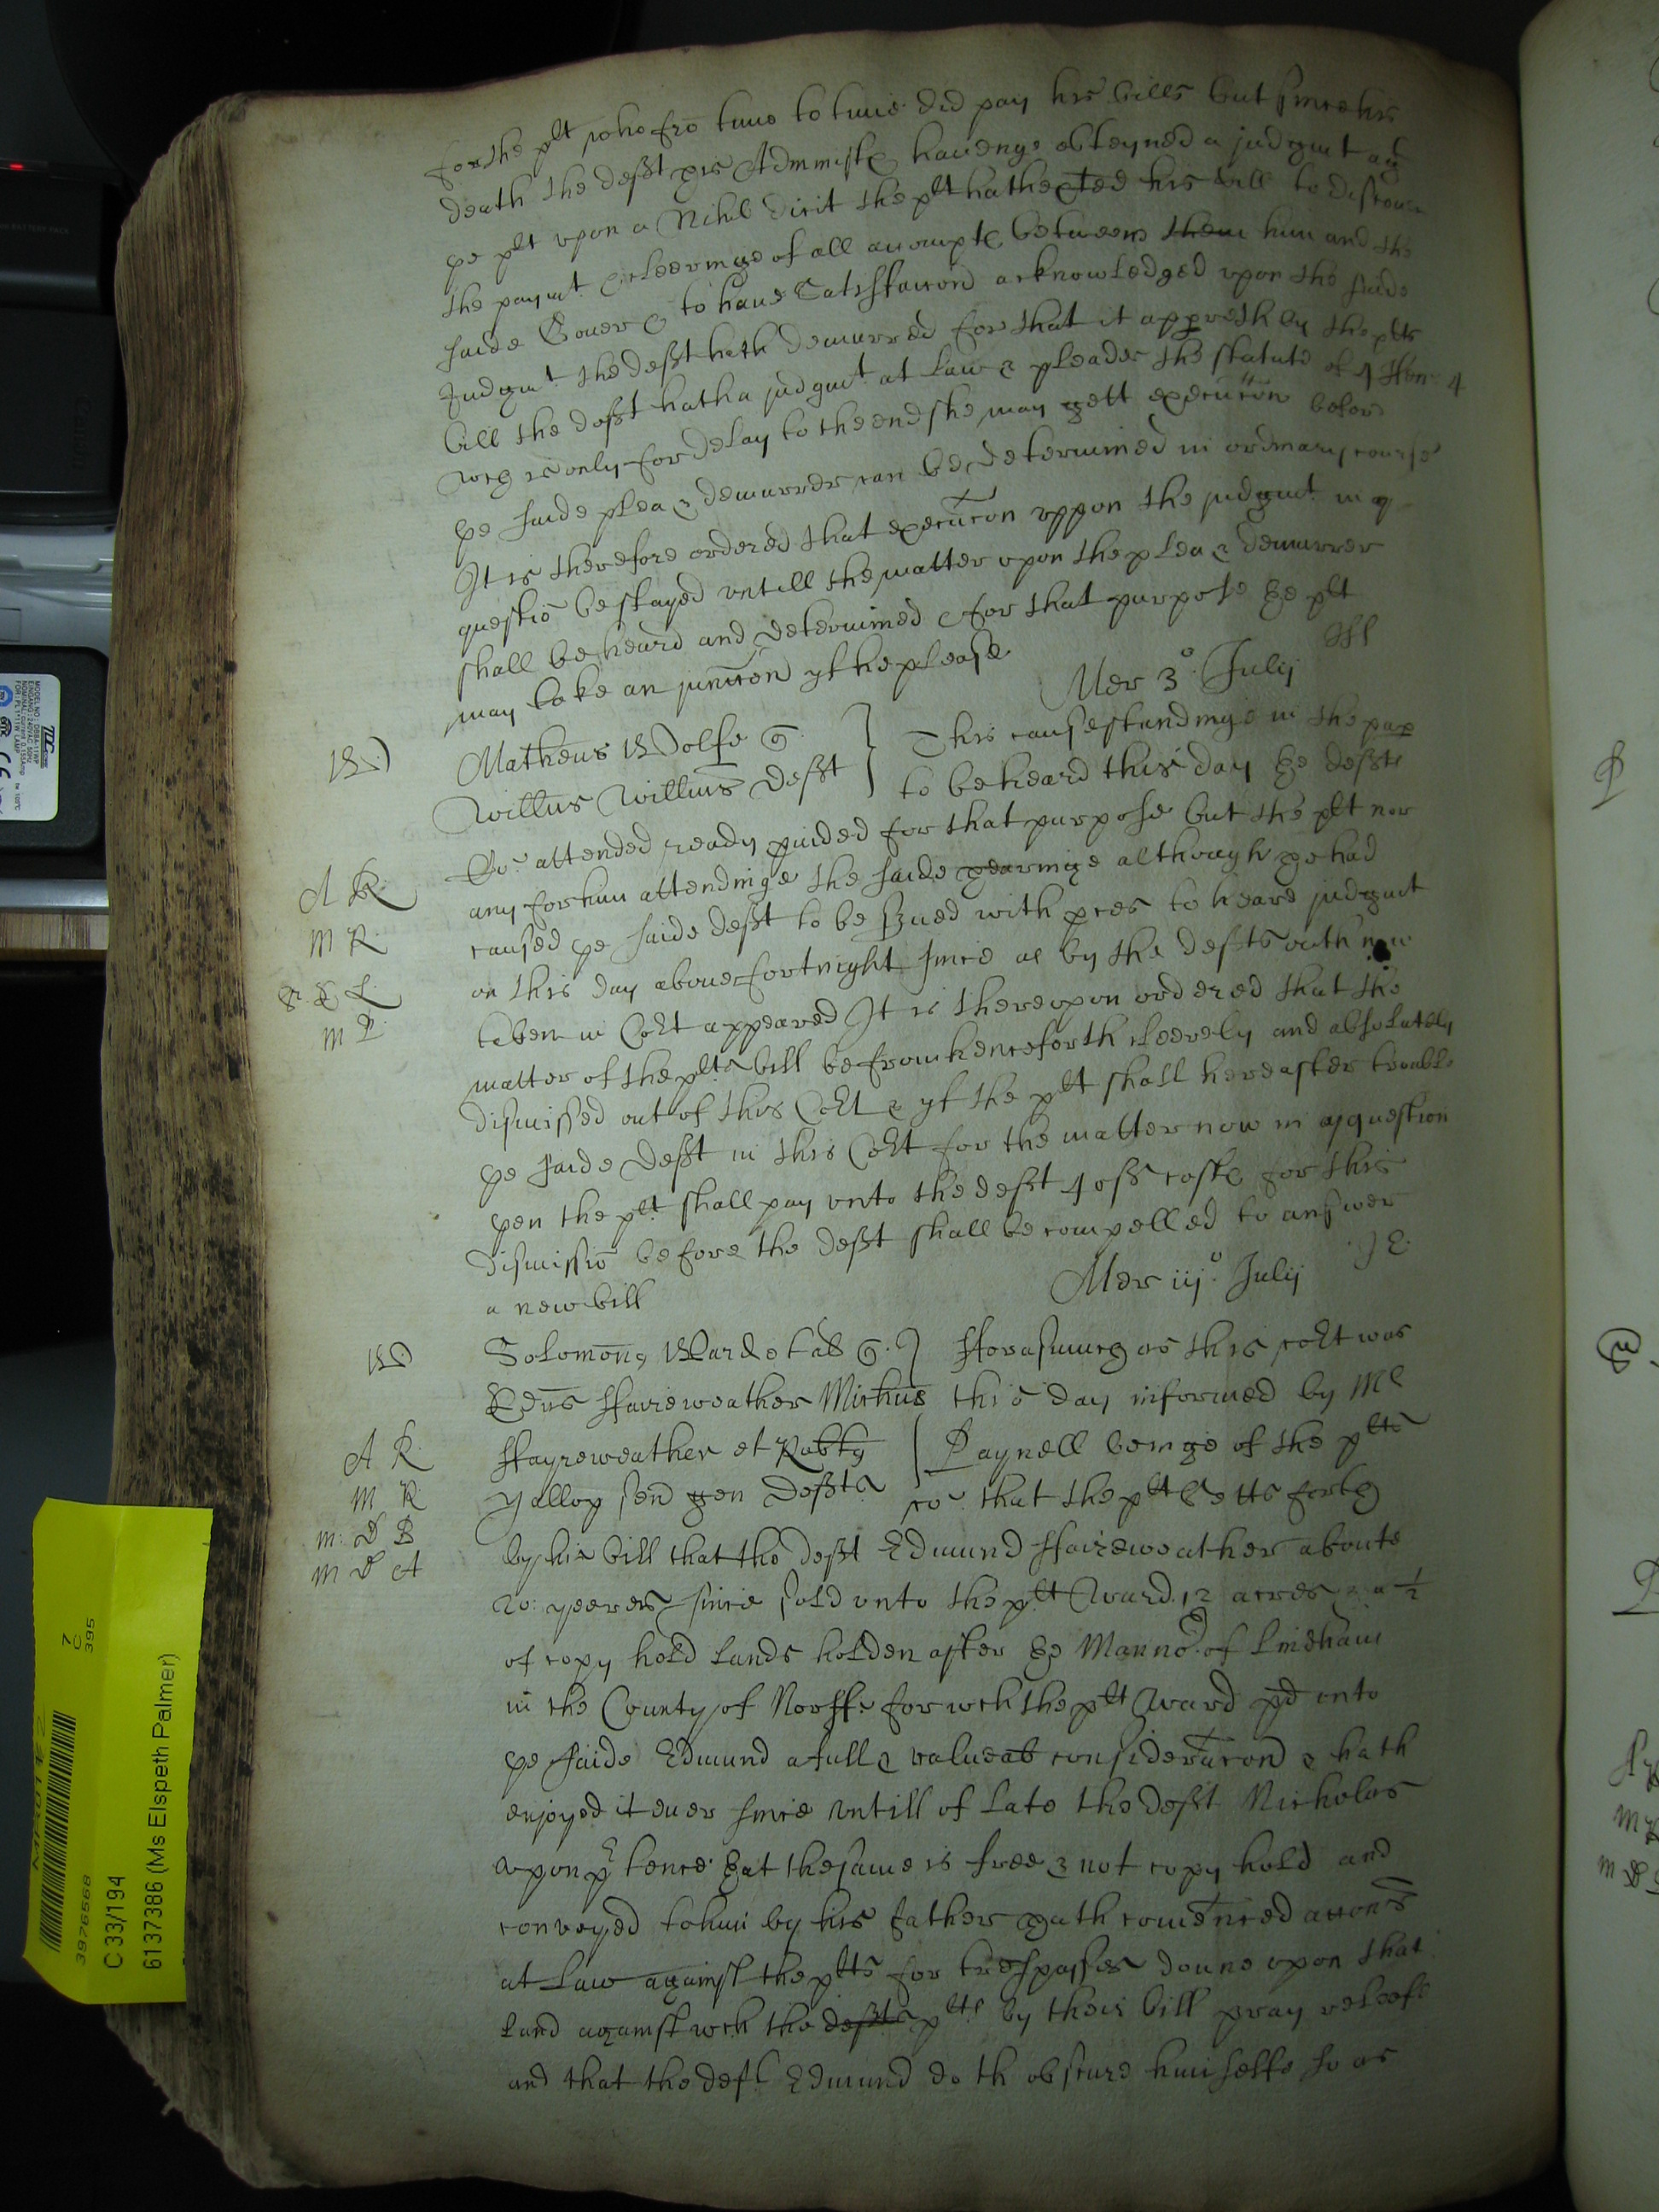 for the plt who frō time to time did pay his bills but since his
death the deft his Administr haueinge obteyned a judgmt agt
ye plt vpon a Nihil dicit the plt hath exhted his bill to discouer
the paymt & cleeringe of all accompts betweene them him and the
saide & to haue Satisfaccon acknowledged vpon the saide
Judgmt the deft hath demurred for that it appereth by the plts
bill the deft hath a judgmt at law & pleades the statute of 4 Hen: 4
wch is only for delay to the end she may gett execution before
ye saide plea & demurrer can be determined in ordinary course
It is therefore ordered that execution vppon the judgmt in q
questiō be stayed vntill the matter vpon the plea & demurrer
shall be heard and determined & for that purpose ye plt
may take an junccon yf he please
Mer 3° Julij
Matheus Wolfe q
Willus Willms deft
This cause standinge in the pap
to be heard this day ye defts
Co: attended ready for that purpose but the plt nor
any for him attendinge the saide hearinge although he had
caused ye saide deft to be serued with proces to heare judgmt
on this day aboue fortnight since as by the defts oath now
taken in Cort appeared It is therevpon ordered that the
matter of the plts bill be from henceforth cleerely and absolutely
dismissed out of this Cort & yf the plt shall hereafter trouble
ye saide deft in this Cort for the matter now in question
then the plt shall pay vnto the deft 40ss costs for this
dismissiō before the deft shall be compelled to answer
a new bill
Mer iij° Julij
A R
M R
M P
Solomon Ward et al q
Edus Faireweather Michus
Fayreweather et Robtus
Yallop sen gen defts
Forasmuch as this cort was
this day informed by Mr
Paynell beinge of the plts
co: that the plt setts forth
A R
M R
by his bill that the deft Edmund Faireweather aboute
20: yeeres since sold vnto the plt Ward 12 acres & a ½
of copy hold lands holden after ye Mannor of
in the County of Norff: for wch the plt Ward pd vnto
ye saide Edmund a full & valueab consideracon & hath
enjoyed it euer since vntill of late the deft Nicholas
vpon p'tence yat the same is free & not copy hold and
conveyed to him by his father hath comenced accons
at law against the plts for trespasses donne vpon that
land against wch the defts plts by their bill pray releefe
and that the deft Edmund doth obscure himselfe so as
39776568
7
C
395
C 33/194
6137386 (Ms Elspeth Palmer)